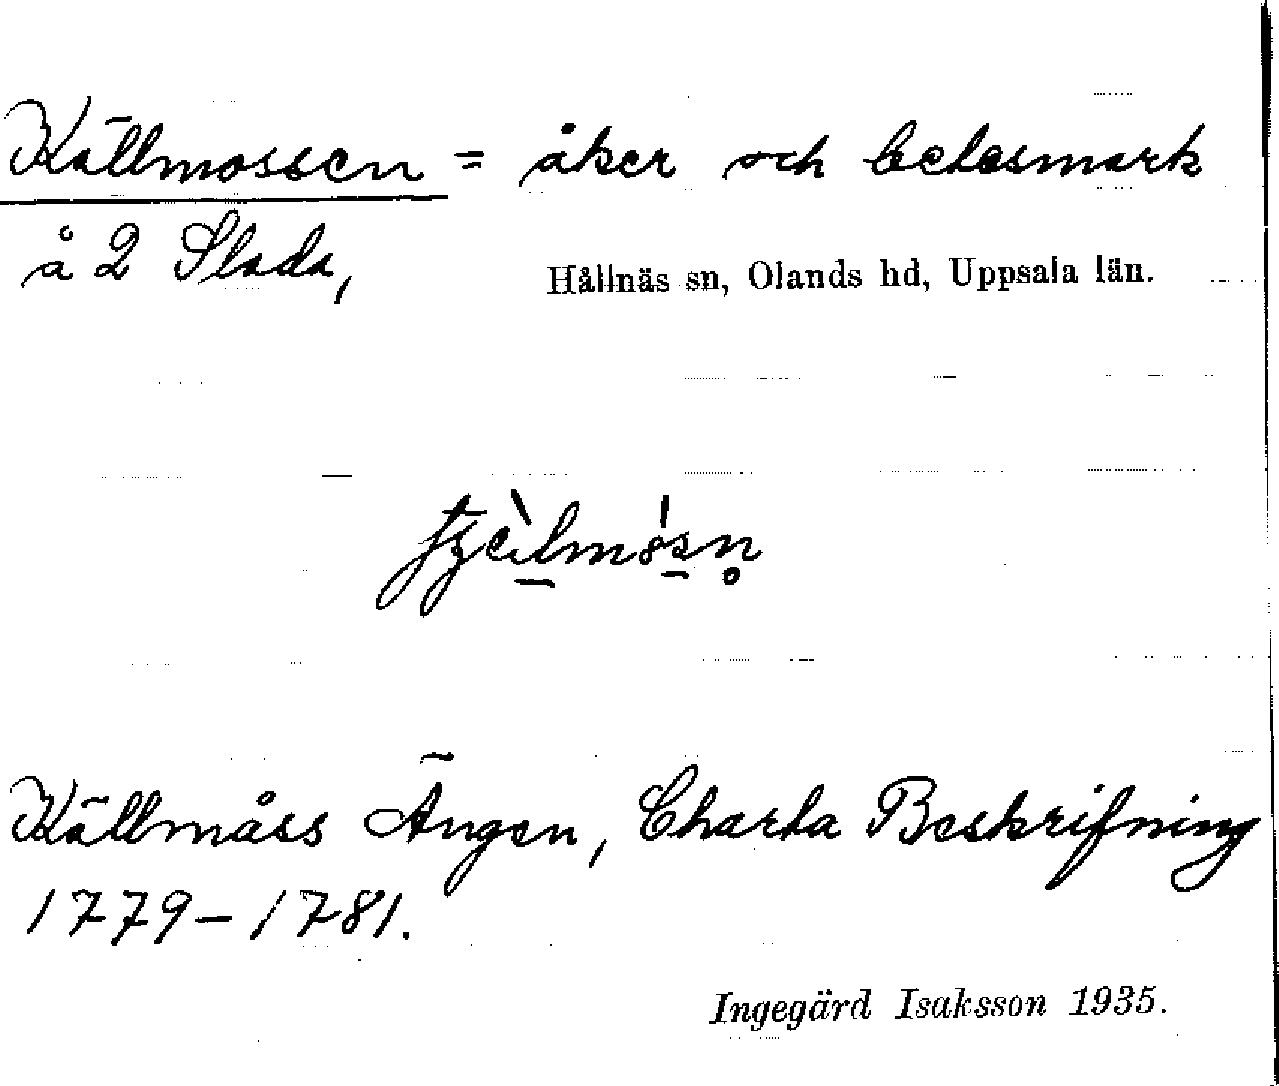 Källmossen = åker och betesmark
å 2 Slada,
Hållnäs sn, Olands hd, Uppsala län.
Källmåss Ängen, Charta Beskrifning
1779–1781.
Ingegärd Isaksson 1935.